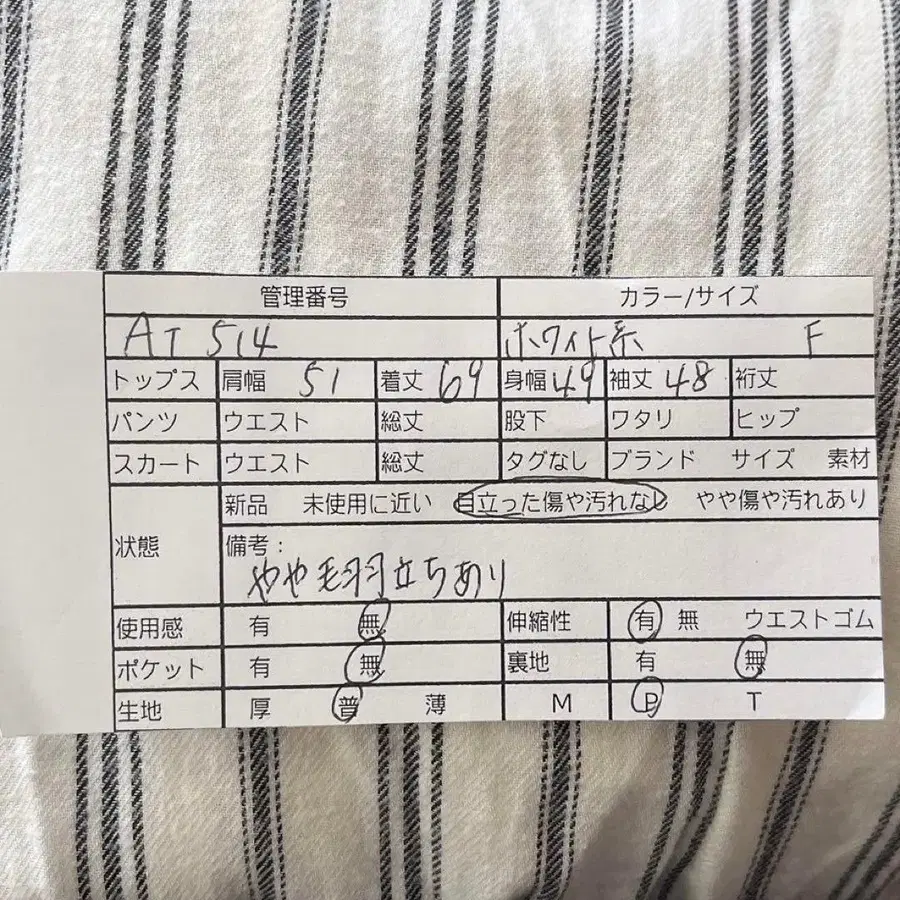 管理番号 カラー/サイズ
AT 514 ホワイト系 F
トップス 肩幅 51 着丈 69 身幅 49 袖丈 48 裄丈
パンツ ウエスト 総丈 股下 ワタリ ヒップ
スカート ウエスト 総丈 タグなし ブランド サイズ 素材
新品 未使用に近い 目立った傷や汚れなし やや傷や汚れあり
状態 備考:
やや毛羽立ちあり
使用感 有 無 伸縮性 有 無 ウエストゴム
ポケット 有 無 裏地 有 無
生地 厚 普 薄 M P T